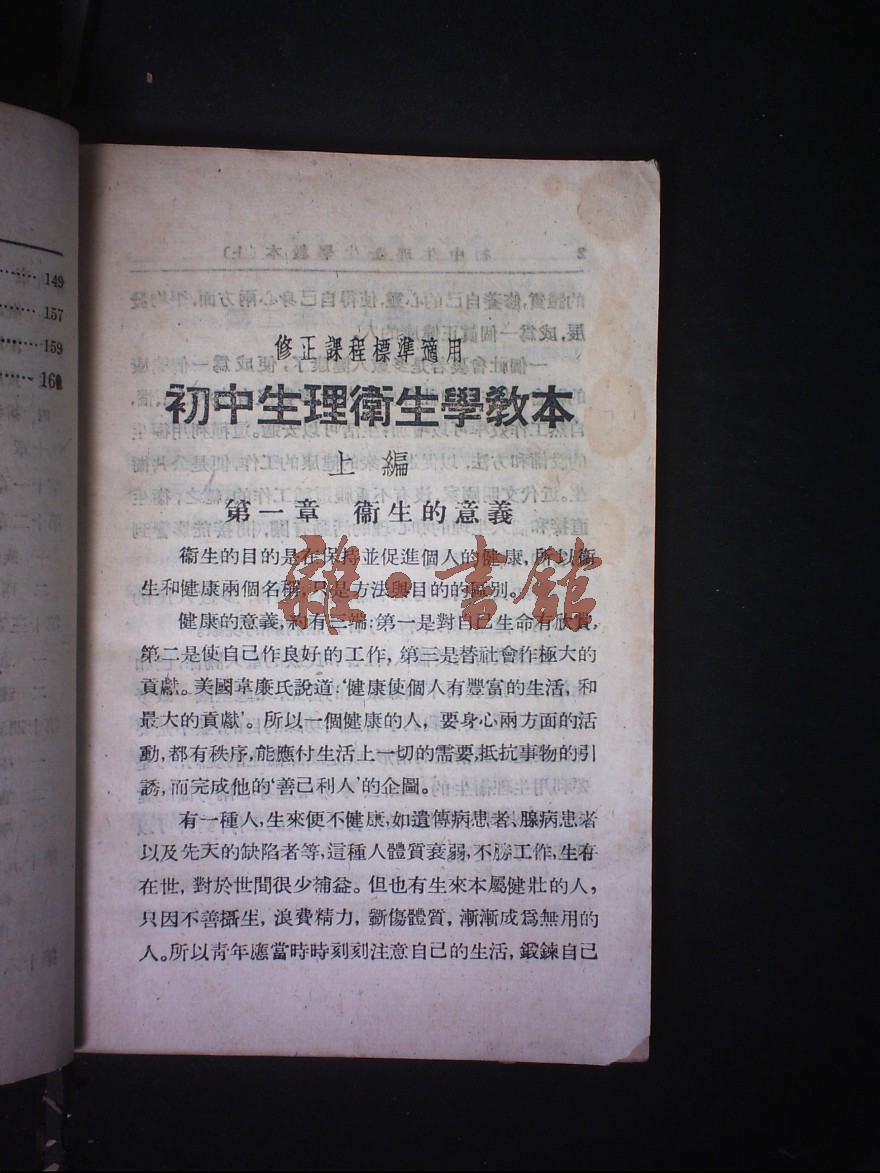 149
157
159
160
修正課程標準適用
初中生理衛生學教本
上編
第一章 衞生的意義
衞生的目的是在保持並促進個人的健康,所以衞
生和健康兩個名稱,只是方法與目的的區別。
健康的意義,約有三端:第一是對自己生命有欣賞,
第二是使自己作良好的工作,第三是替社會作極大的
貢獻。美國韋廉氏說道:‘健康使個人有豐富的生活,和
最大的貢獻’。所以一個健康的人,要身心兩方面的活
動,都有秩序,能應付生活上一切的需要,抵抗事物的引
誘,而完成他的‘善己利人’的企圖。
有一種人,生來便不健康,如遺傳病患者、腺病患者
以及先天的缺陷者等,這種人體質衰弱,不勝工作,生存
在世,對於世間很少補益。但也有生來本屬健壯的人,
只因不善攝生,浪費精力,斵傷體質,漸漸成爲無用的
人。所以青年應當時時刻刻注意自己的生活,鍛鍊自己
雜·書館